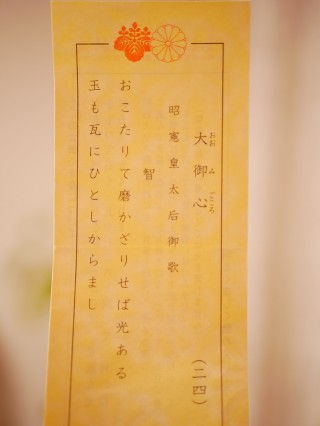 大御心
おおみごころ
(二四)
昭憲皇太后御歌
智
おこたりて磨かざりせば光ある
玉も瓦にひとしからまし